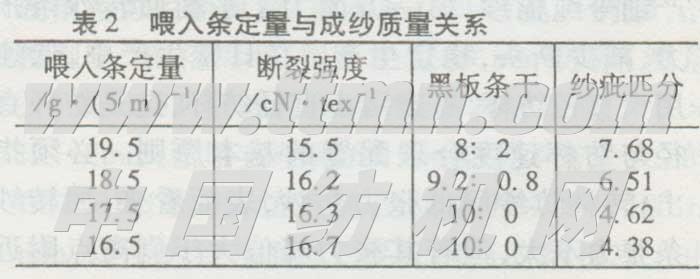 表 2 喂入条定量与成纱质量关系
喂人条定量 断裂强度 黑板条干 纱疵匹分
/g·(5 m)⁻¹ cN·tex⁻¹
19.5 15.5 8: 7.68
18.5 16.2 9.2: 0.8 6.51
17.5 16.3 10: 0 4.62
16.5 16.7 10: 0 4.38
www.ttmn.com
中国纺机网